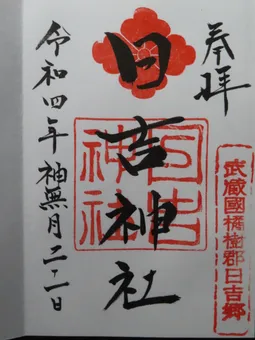 奉拝
日吉神社
日吉神社
武蔵國橘樹郡日吉郷
令和四年神無月二二日